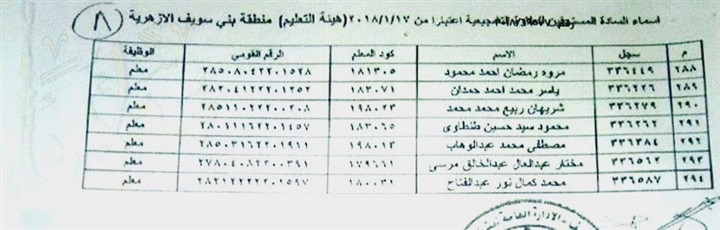 ٨
اسماء السادة المستحقين للعلاوة التشجيعية اعتبارا من ٢٠١٨/١/١٧ (هيئة التعليم) منطقة بني سويف الازهرية
م سجل الاسم كود المعلم الرقم القومي الوظيفة
٢٨٨ ٣٣٦٤٤٩ مروه رمضان احمد محمود ١٨١٣٠٥ ٢٨٥٠٨٠٤٢٢٠١٥٢٨ معلم
٢٨٩ ٣٣٦٢٢٦ ياسر محمد احمد حمدان ١٨٣٠٧١ ٢٨٢٠٤١٢٢٠١٢٥٢ معلم
٢٩٠ ٣٣٦٢٧٩ شريهان ربيع محمد محمد ١٩٨٠٢٣ ٢٨٥١١٠٢٢٢٠٠٢٠٨ معلم
٢٩١ ٣٣٦٢٦٢ محمود سيد حسين طنطاوى ١٨٣٠٦٥ ٢٨٠١١١٦٢٢٠١٤٥٧ معلم
٢٩٢ ٣٣٦٣٨٤ مصطفى محمد عبدالوهاب ١٩٨٠١٣ ٢٨٥٠٣١٦٢٢٠١٩١١ معلم
٢٩٣ ٣٣٦٥٦٢ مختار عبدالعال عبدالخالق مرسى ١٧٩٦٦١ ٢٧٨٠٤٠٨٢٢٠٠٣٩١ معلم
٢٩٤ ٣٣٦٥٨٧ محمد كمال نور عبدالفتاح ١٨٠٠٣١ ٢٨٢١٢٢٢٢٢٠١٥٩٧ معلم
الادارة العامة